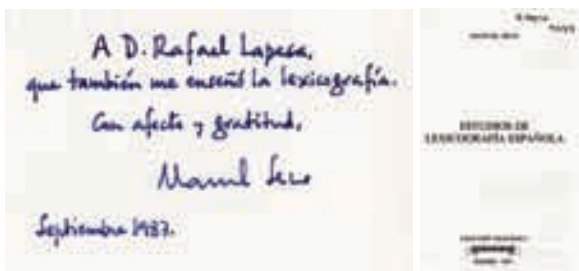 A D. Rafael Lapesa,
que también me enseñó la lexicografía.
Con afecto y gratitud,
Manuel Seco
Septiembre 1987.
ESTUDIOS DE
LEXICOGRAFÍA ESPAÑOLA